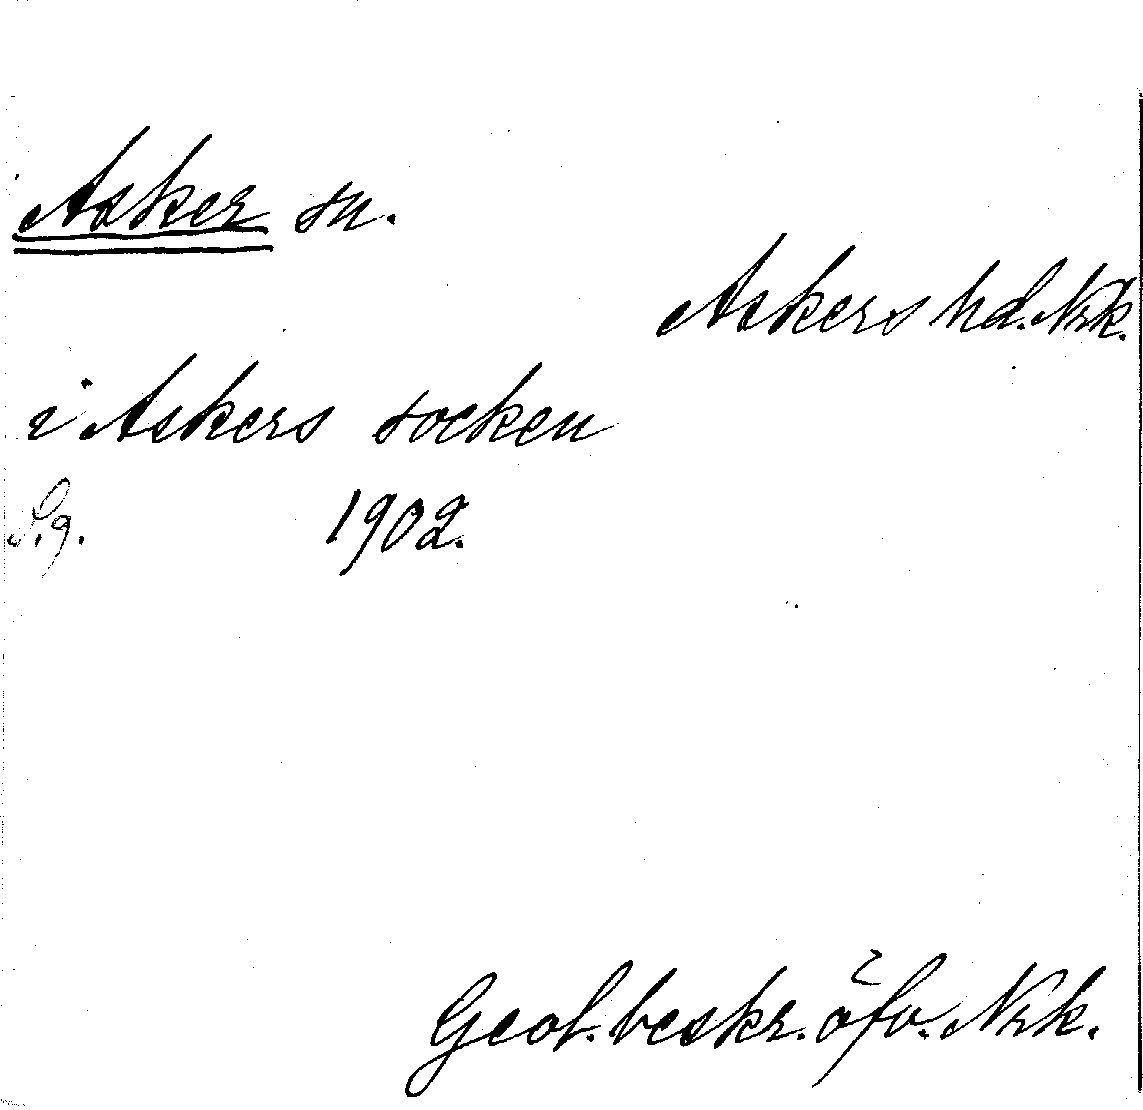 Asker sn.
Askers hd. Nrk.
i Askers socken
S. 9. 1902.
Geol. beskr. öfv. Nrk.